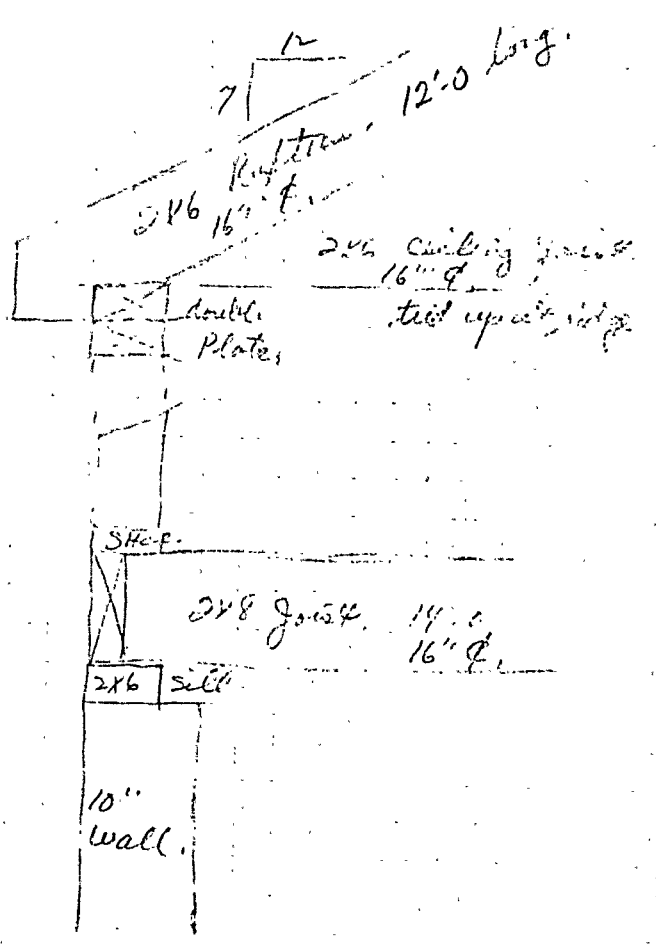 12
7
12'-0 long.
2x6 Rafters.
16" ¢.
2x6 ceiling joist
16" ¢
tied up at ridge
double
Plate,
SHOE.
2x8 Joist. 14'.0
16" ¢.
2x6 Sill
10"
Wall.